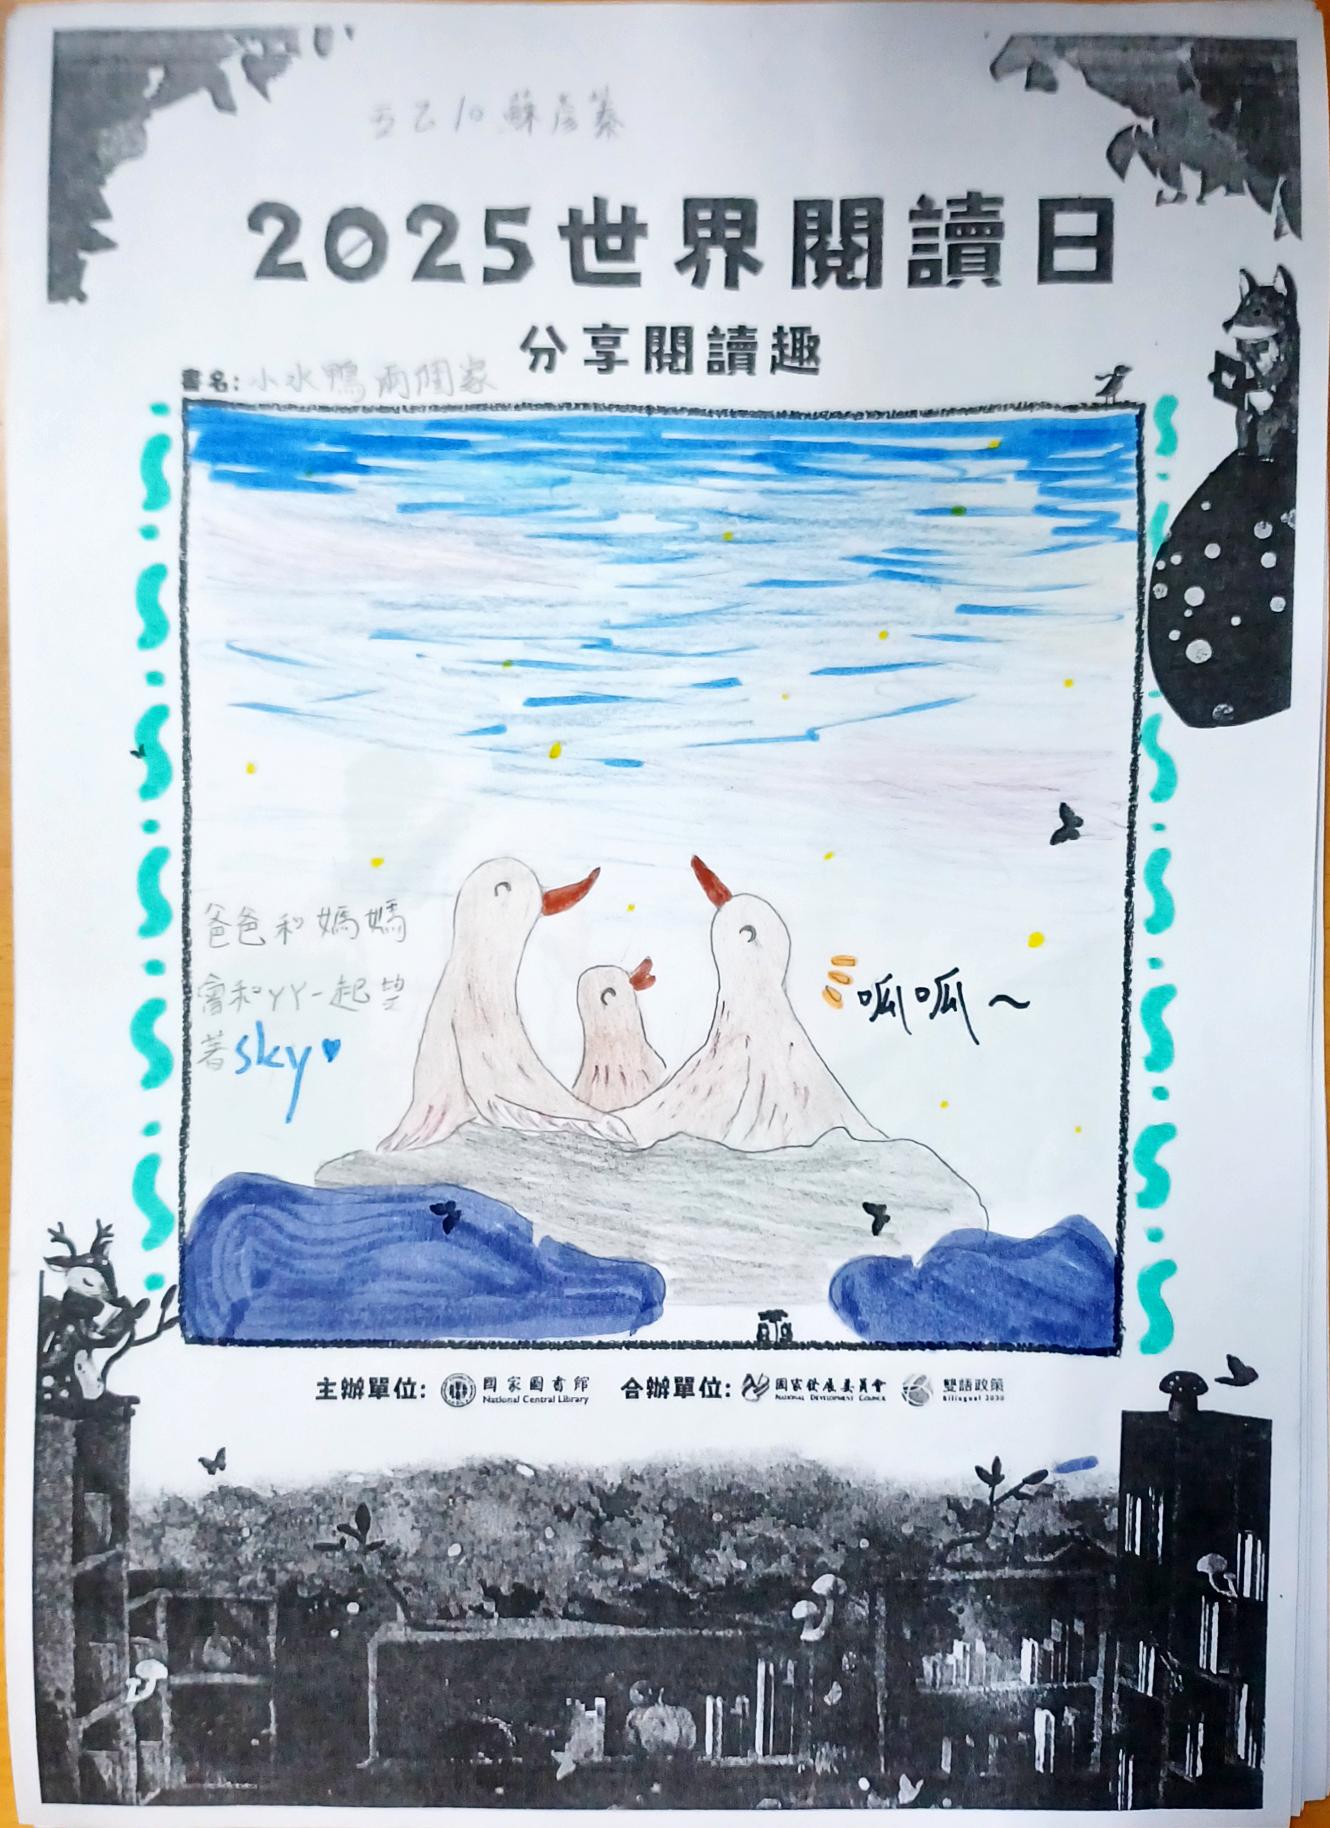 五乙10 蘇彥蓁
2025世界閱讀日
分享閱讀趣
書名: 小水鴨兩個家
爸爸和媽媽
會和YY一起望
著sky
呱呱～
主辦單位: 國家圖書館 National Central Library 合辦單位: 國家發展委員會 NATIONAL DEVELOPMENT COUNCIL 雙語政策 Bilingual 2030